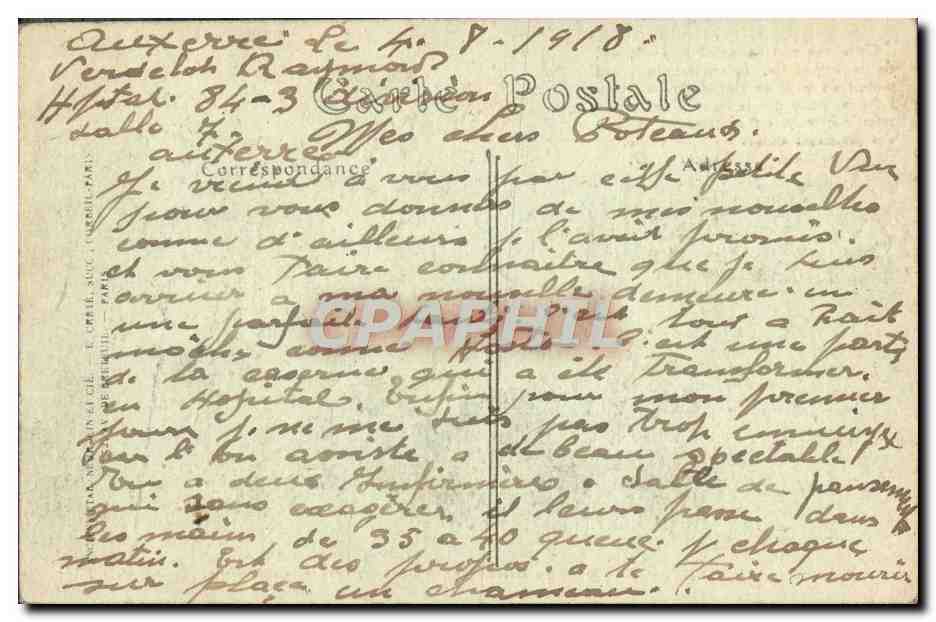 Auxerre le 4. 8 - 1918.
Verdelot Raymond
Hpital. 84-3 division
Carte Postale
Salle 7. Mes chers Poteaux.
auxerre
Correspondance Adresse
Je viens a vous par cette petite Vue
pour vous donner de mes nouvelles
comme d'ailleurs j. l'avait promis.
et vous Faire connaitre que je suis
arriver a ma nouvelle demeure. en
une parfaite tout a Fait
moche comme c'est une partie
de la caserne qui a ete Transformer.
en Hopital. Enfin pour mon premier
jour j. ne me suis pas trop ennuiyé
car l'on assiste a de beau spectable
On a deux Infirmires a Salle de pansement
qui sans exagérer il leurs passe dans
les mains de 35 a 40 queues p chaque
matin. Est des propos. a te Faire mourir
sur place un chameau.
CPAPHIL